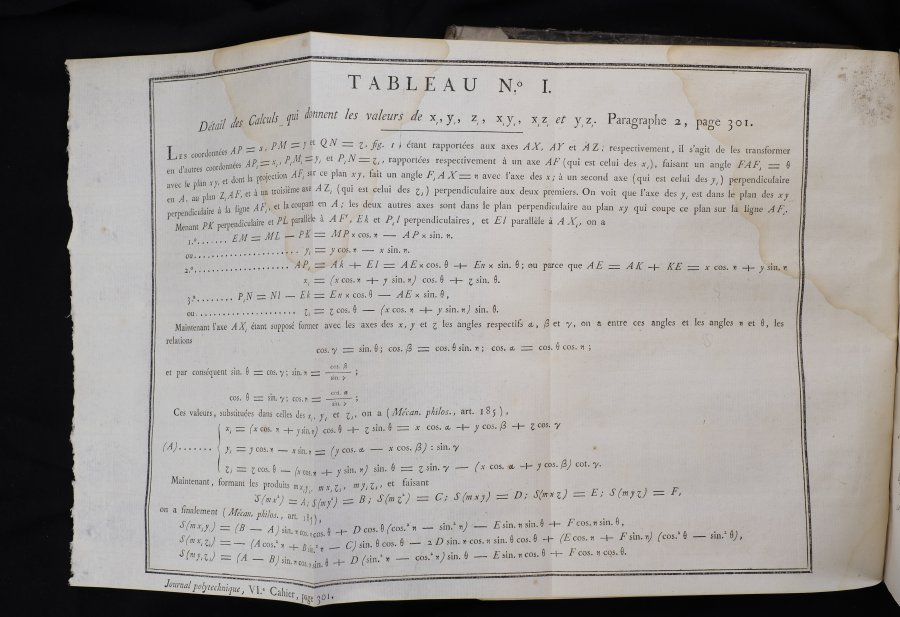 TABLEAU N.º I.
Détail des Calculs qui donnent les valeurs de x, , y, , z, , x,y, , x,z, et y,z,. Paragraphe 2, page 301.
LES coordonnées AP = x, PM = y et QN = z, fig. 1, étant rapportées aux axes AX, AY et AZ; respectivement, il s'agit de les transformer
en d'autres coordonnées AP, = x, , P,M, = y, et P,N = z, , rapportées respectivement à un axe AF (qui est celui des x,), faisant un angle FAF, = θ
avec le plan xy, et dont la projection AF, sur ce plan xy, fait un angle F,AX = π avec l'axe des x; à un second axe (qui est celui des y,) perpendiculaire
en A, au plan Z,AF, et à un troisième axe AZ, (qui est celui des z,) perpendiculaire aux deux premiers. On voit que l'axe des y, est dans le plan des xy
perpendiculaire à la ligne AF, et la coupant en A; les deux autres axes sont dans le plan perpendiculaire au plan xy qui coupe ce plan sur la ligne AF,.
Menant PK perpendiculaire et PL parallèle à AF, Ek et P,l perpendiculaires, et El parallèle à AX, , on a
1.º....... EM = ML — PK = MP × cos. π — AP × sin. π.
ou.................... y, = y cos. π — x sin. π.
2.º.................... AP, = Ak + El = AE × cos. θ + En × sin. θ; ou parce que AE = AK + KE = x cos. π + y sin. π
x, = (x cos. π + y sin. π) cos. θ + z sin. θ.
3.º........ P,N = Nl — Ek = En × cos. θ — AE × sin. θ,
ou.................... z, = z cos. θ — (x cos. π + y sin. π) sin. θ.
Maintenant l'axe AX, étant supposé former avec les axes des x, y et z les angles respectifs α, β et γ, on a entre ces angles et les angles π et θ, les
relations
cos. γ = sin. θ; cos. β = cos. θ sin. π; cos. α = cos. θ cos. π;
et par conséquent sin. θ = cos. γ; sin. π = cos. β / sin. γ ;
cos. θ = sin. γ; cos. π = cos. α / sin. γ ;
Ces valeurs, substituées dans celles des x, , y, et z, , on a (Mécan. philos., art. 185),
x, = (x cos. π + y sin. π) cos. θ + z sin. θ = x cos. α + y cos. β + z cos. γ
(A)....... y, = y cos. π — x sin. π = (y cos. α — x cos. β) : sin. γ
z, = z cos. θ — (x cos. π + y sin. π) sin. θ = z sin. γ — (x cos. α + y cos. β) cot. γ.
Maintenant, formant les produits m x,y, , m x,z, , m y,z, , et faisant
S(mx²) = A; S(my²) = B; S(mz²) = C; S(mxy) = D; S(mxz) = E; S(myz) = F,
on a finalement (Mécan. philos., art. 185),
S(mx,y,) = (B — A) sin. π cos. π cos. θ + D cos. θ (cos.² π — sin.² π) — E sin. π sin. θ + F cos. π sin. θ,
S(mx,z,) = — (A cos.² π + B sin.² π — C) sin. θ cos. θ — 2 D sin. π cos. π sin. θ cos. θ + (E cos. π + F sin. π) (cos.² θ — sin.² θ),
S(my,z,) = (A — B) sin. π cos. π sin. θ + D (sin.² π — cos.² π) sin. θ — E sin. π cos. θ + F cos. π cos. θ.
Journal polytechnique, VI.e Cahier, page 301.